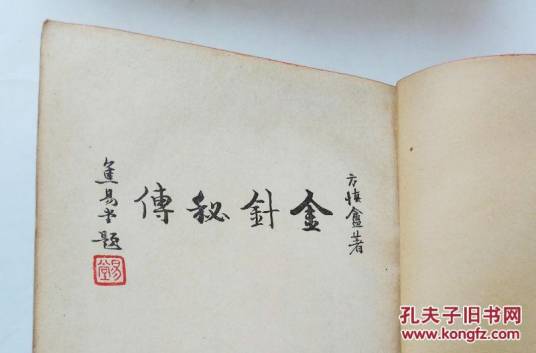 方慎盦著
金針秘傳
焦易堂題
易堂
孔夫子旧书网
www.kongfz.com